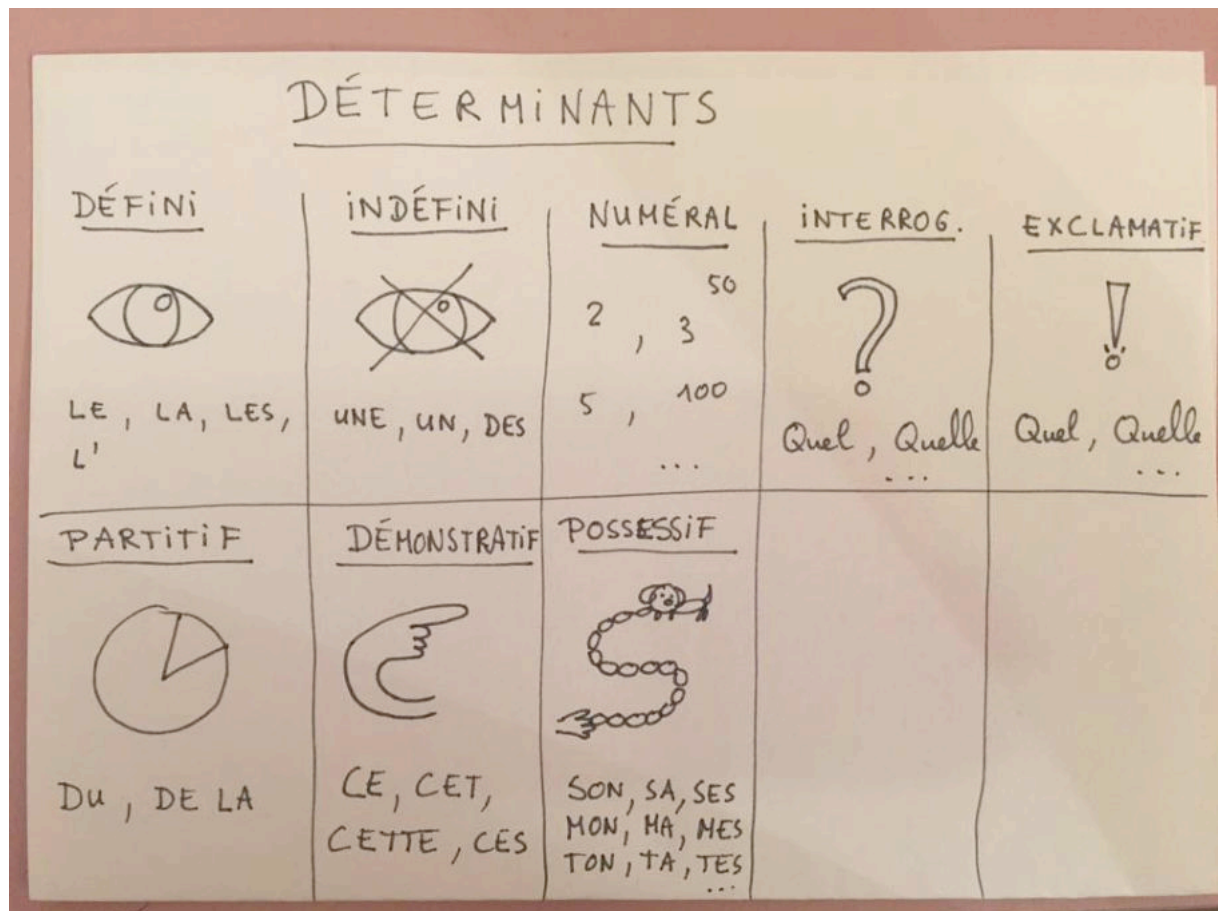 DÉTERMINANTS
DÉFINI
LE, LA, LES,
L'
INDÉFINI
UNE, UN, DES
NUMÉRAL
50
2, 3
5, 100
...
INTERROG.
?
Quel, Quelle
...
EXCLAMATIF
!
Quel, Quelle
...
PARTITIF
DU, DE LA
DÉMONSTRATIF
CE, CET,
CETTE, CES
POSSESSIF
SON, SA, SES
MON, MA, MES
TON, TA, TES
...